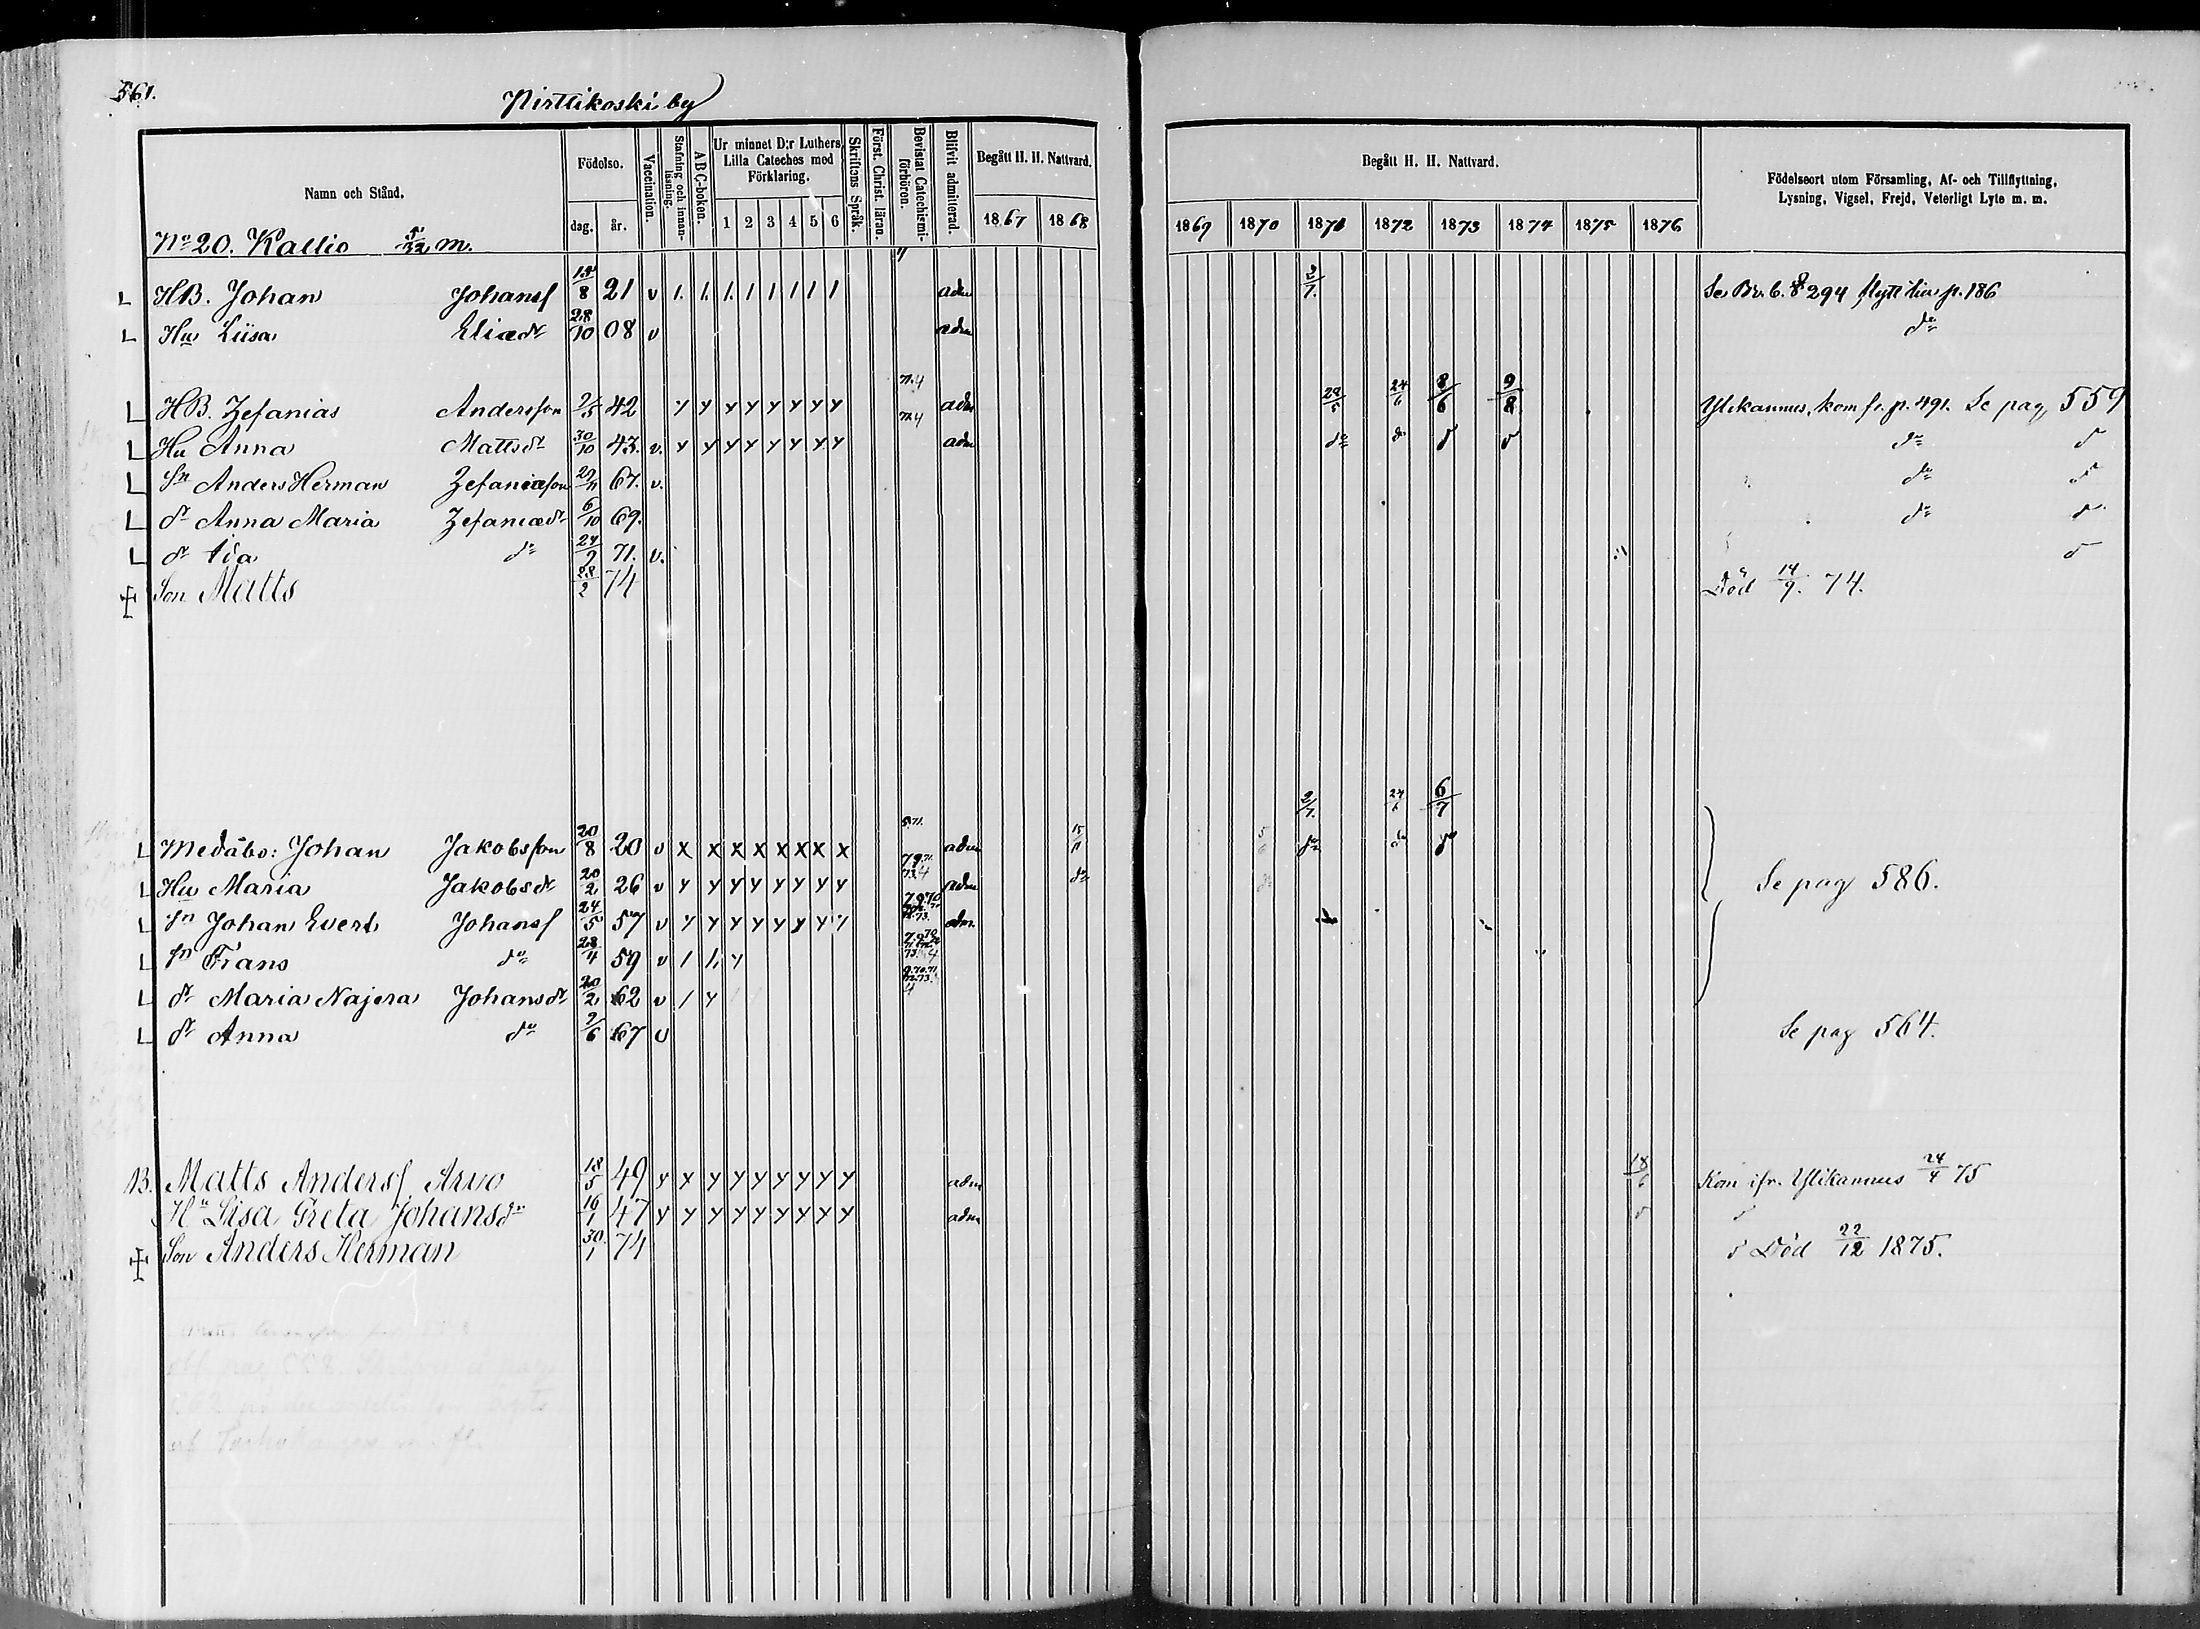 561.
Pirttikoski by
Namn och Stånd. Födelse. dag. år. Vaccination. Stafning och innanläsning. ABC-boken. Ur minnet D:r Luthers Lilla Cateches med Förklaring. 1 2 3 4 5 6 Skriftens Språk. Först. Christ. läran. Bevistat Catechismi-förhören. Blifvit admitterad. Begått H. H. Nattvard. 1867 1868
Begått H. H. Nattvard. 1869 1870 1871 1872 1873 1874 1875 1876
Födelseort utom Församling, Af- och Tillflyttning, Lysning, Vigsel, Frejd, Veterligt Lyte m. m.
No 20. Kallio 5/32 m.
L HB. Johan Johansf 13/8 21 v 1. 1. 1. 1 1 1 1 1 adm 2/7. Se Br. b. 294 flytt hie p. 186
L Hu Liisa Eliædr 28/10 08 v adm do
L HB. Zefanias Andersson 2/5 42 y y y y y y y y 71.4 adm 29/5 24/6 8/6 9/8 Ylikannus, kom fr. p. 491. Se pag 559
L Hu Anna Mattsdr 30/10 43. v. y y y y y y y y 72.4 adm do do d d do d
L Sn Anders Herman Zefaniæson 29/11 67. v. do d
L dr Anna Maria Zefaniædr 6/10 69. do d
L dr Ida do 24/9 71. v. d
+ Son Matts 28/2 74 Död 14/9. 74.
2/7. 24/6 6/7
L Medåbo: Johan Jakobsson 20/8 20 v x x x x x x x x adm 15/11 do do d
L Hu Maria Jakobsdr 20/2 26 v y y y y y y y y adm do Se pag 586.
L Sn Johan Evert Johansf 24/5 57 v y y y y y y y y adm
L Sn Frans do 28/4 59 v 1 1. y
L dr Maria Najera Johansdr 20/2 62 v 1 y
L dr Anna do 2/6 67 v Se pag 564.
B. Matts Andersf Arvo 18/5 49 y y y y y y y y y adm 18/6 Kom ifr. Ylikannus 24/4 75
Hu Lisa Greta Johansdr 16/1 47 y y y y y y y y y adm d d
+ Son Anders Herman 30/1 74 d Död 22/12 1875.